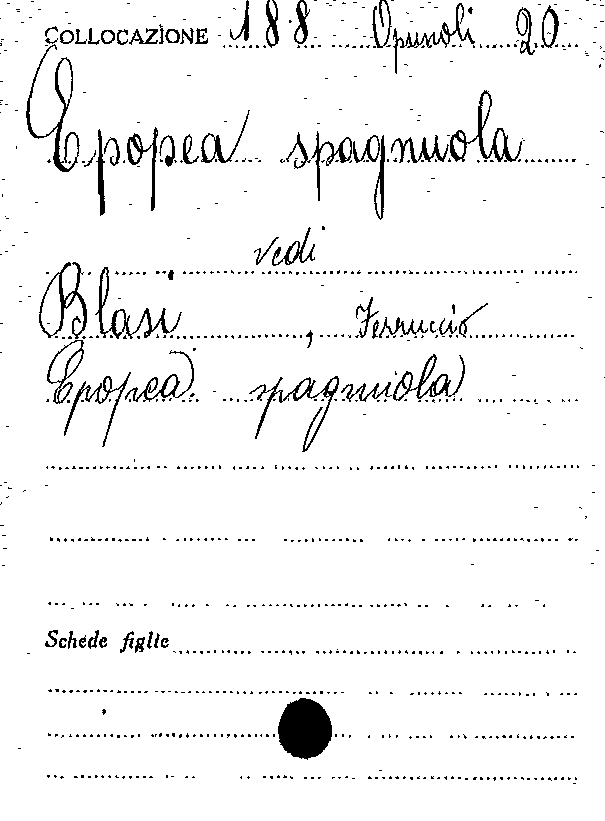 COLLOCAZIONE 188 Opuscoli 20
Epopea spagnuola
vedi
Blasi, Ferruccio
Epopea spagnuola
Schede figlie